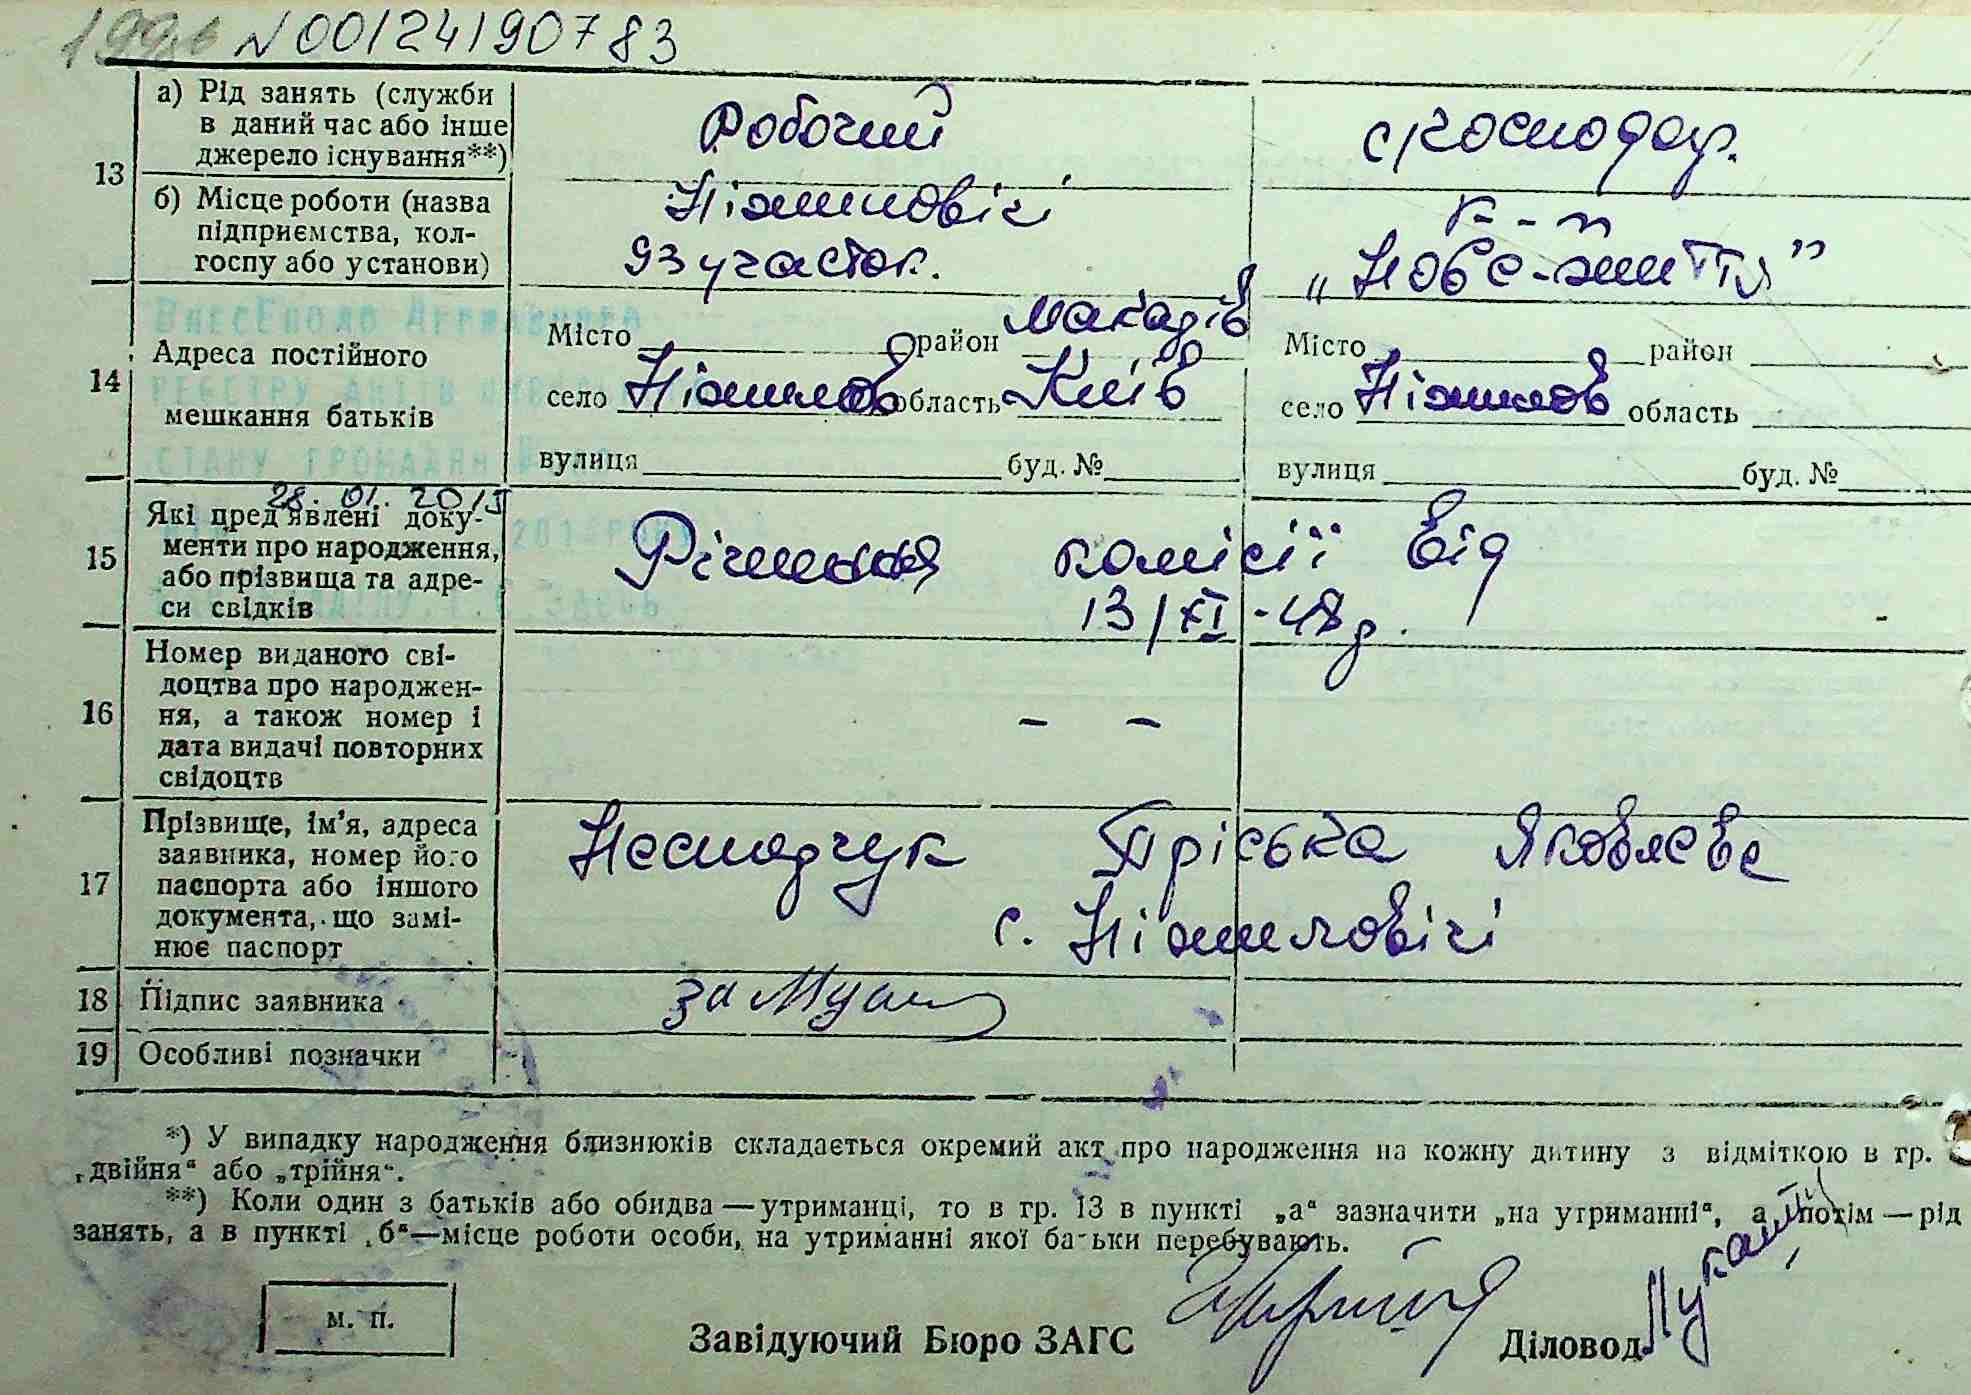 N00124190783
13
а) Рід занять (служби
в даний час або інше
джерело існування**)
Робочий
с/господар.
б) Місце роботи (назва
підприємства, кол-
госпу або установи)
Ніжиловічі
93 участок.
к-п
„Нове-життя”
14
Адреса постійного
мешкання батьків
Місто район Макарів
село Ніжилов область Київ
вулиця буд. №
Місто район
село Ніжилов область
вулиця буд. №
28. 01. 2015
15
Які пред'явлені доку-
менти про народження,
або прізвища та адре-
си свідків
Рішення комісії від
13/XI-48р.
16
Номер виданого сві-
доцтва про народжен-
ня, а також номер і
дата видачі повторних
свідоцтв
– –
17
Прізвище, ім'я, адреса
заявника, номер його
паспорта або іншого
документа, що замі-
нює паспорт
Пріська Яковлєвє
с. Ніжиловічі
18
Підпис заявника
за
19
Особливі позначки
*) У випадку народження близнюків складається окремий акт про народження на кожну дитину з відміткою в гр.
„двійня“ або „трійня“.
**) Коли один з батьків або обидва — утриманці, то в гр. 13 в пункті „а“ зазначити „на утриманні“, а потім — рід
занять, а в пункті „б“—місце роботи особи, на утриманні якої батьки перебувають.
м. п.
Завідуючий Бюро ЗАГС
Діловод